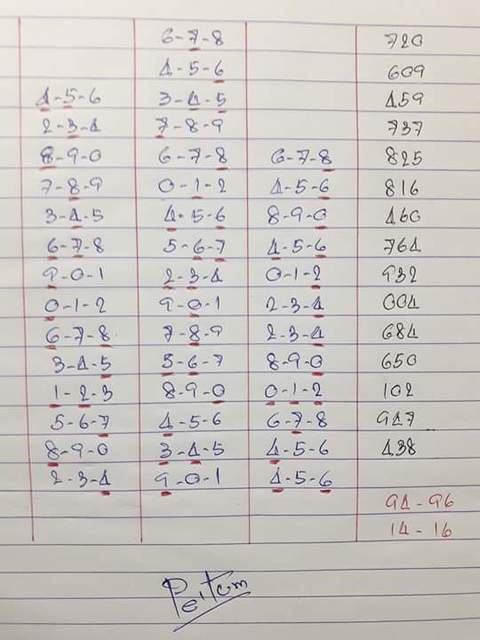 6-7-8 720
4-5-6 609
4-5-6 3-4-5 459
2-3-4 7-8-9 737
8-9-0 6-7-8 6-7-8 825
7-8-9 0-1-2 4-5-6 816
3-4-5 4-5-6 8-9-0 460
6-7-8 5-6-7 4-5-6 764
9-0-1 2-3-4 0-1-2 932
0-1-2 9-0-1 2-3-4 004
6-7-8 7-8-9 2-3-4 684
3-4-5 5-6-7 8-9-0 650
1-2-3 8-9-0 0-1-2 102
5-6-7 4-5-6 6-7-8 947
8-9-0 3-4-5 4-5-6 438
2-3-4 9-0-1 4-5-6
94-96
14-16